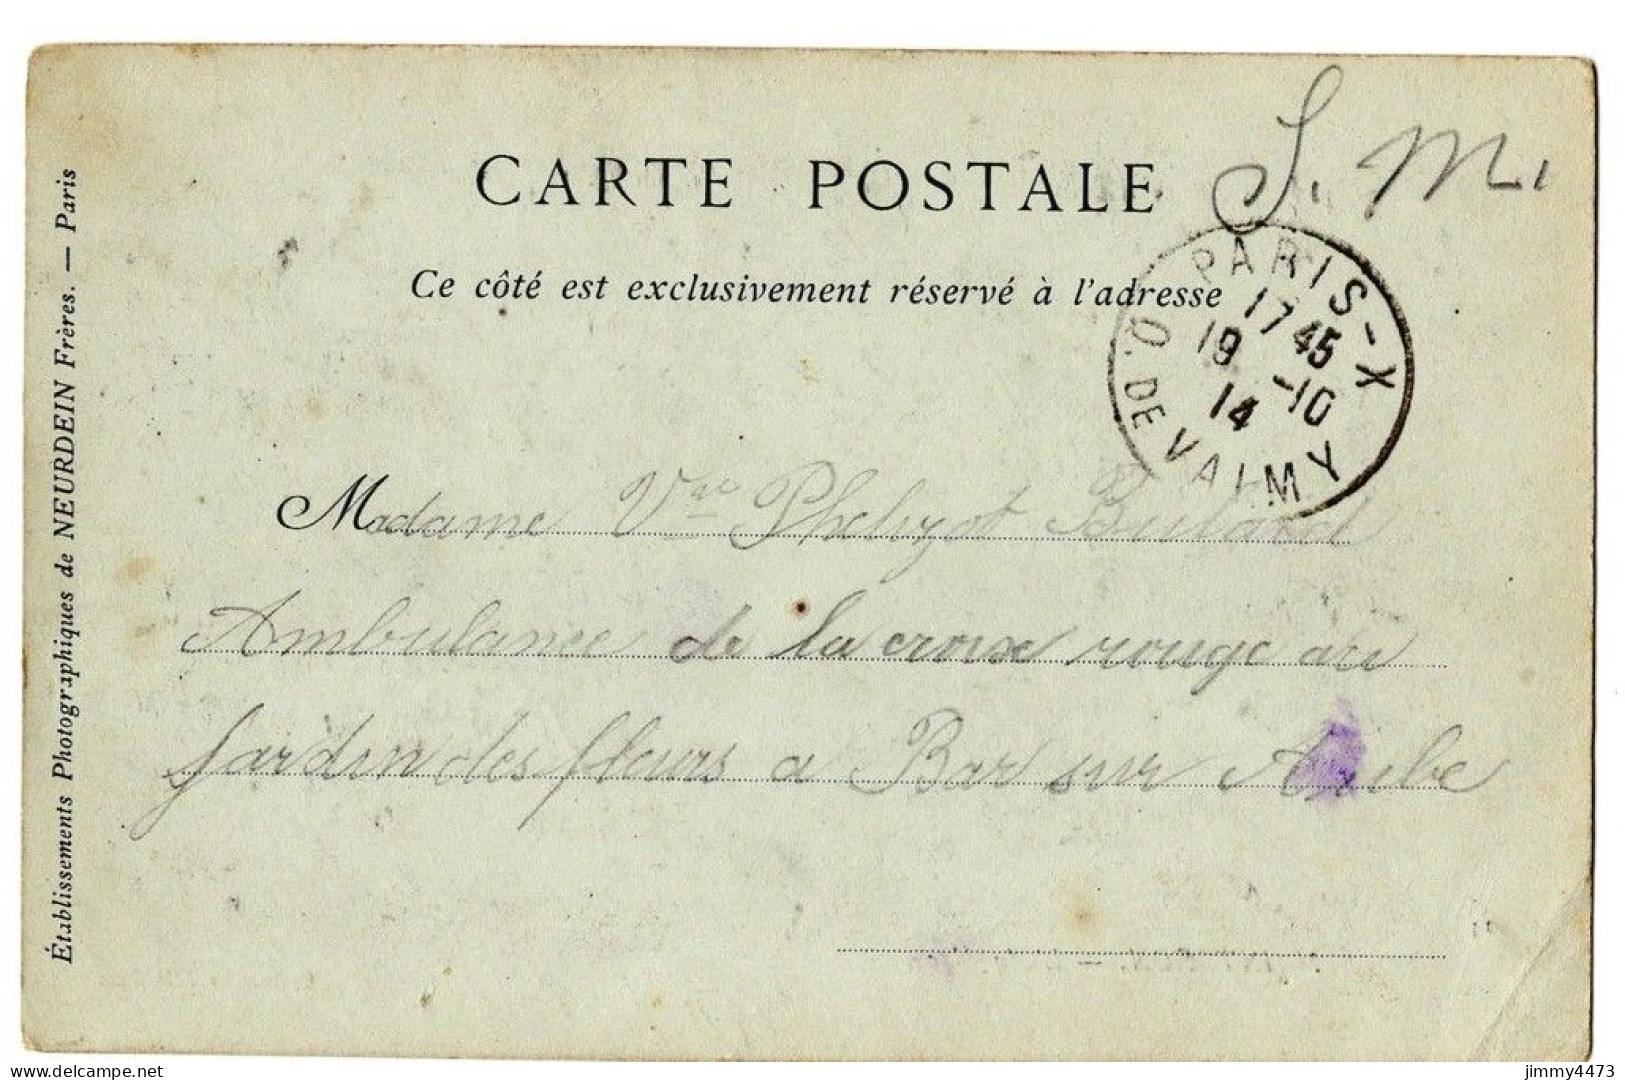 S. M.
CARTE POSTALE
Ce côté est exclusivement réservé à l'adresse
PARIS-X
17 45
19 -10
14
Q. DE VALMY
Madame Vve
Ambulance de la croix rouge au
Jardin des fleurs a Bar sur Aube
Établissements Photographiques de NEURDEIN Frères. — Paris
delcampe.net
jimmy4473